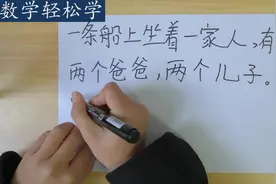 数学轻松学
一条船上坐着一家人,有
两个爸爸,两个儿子。